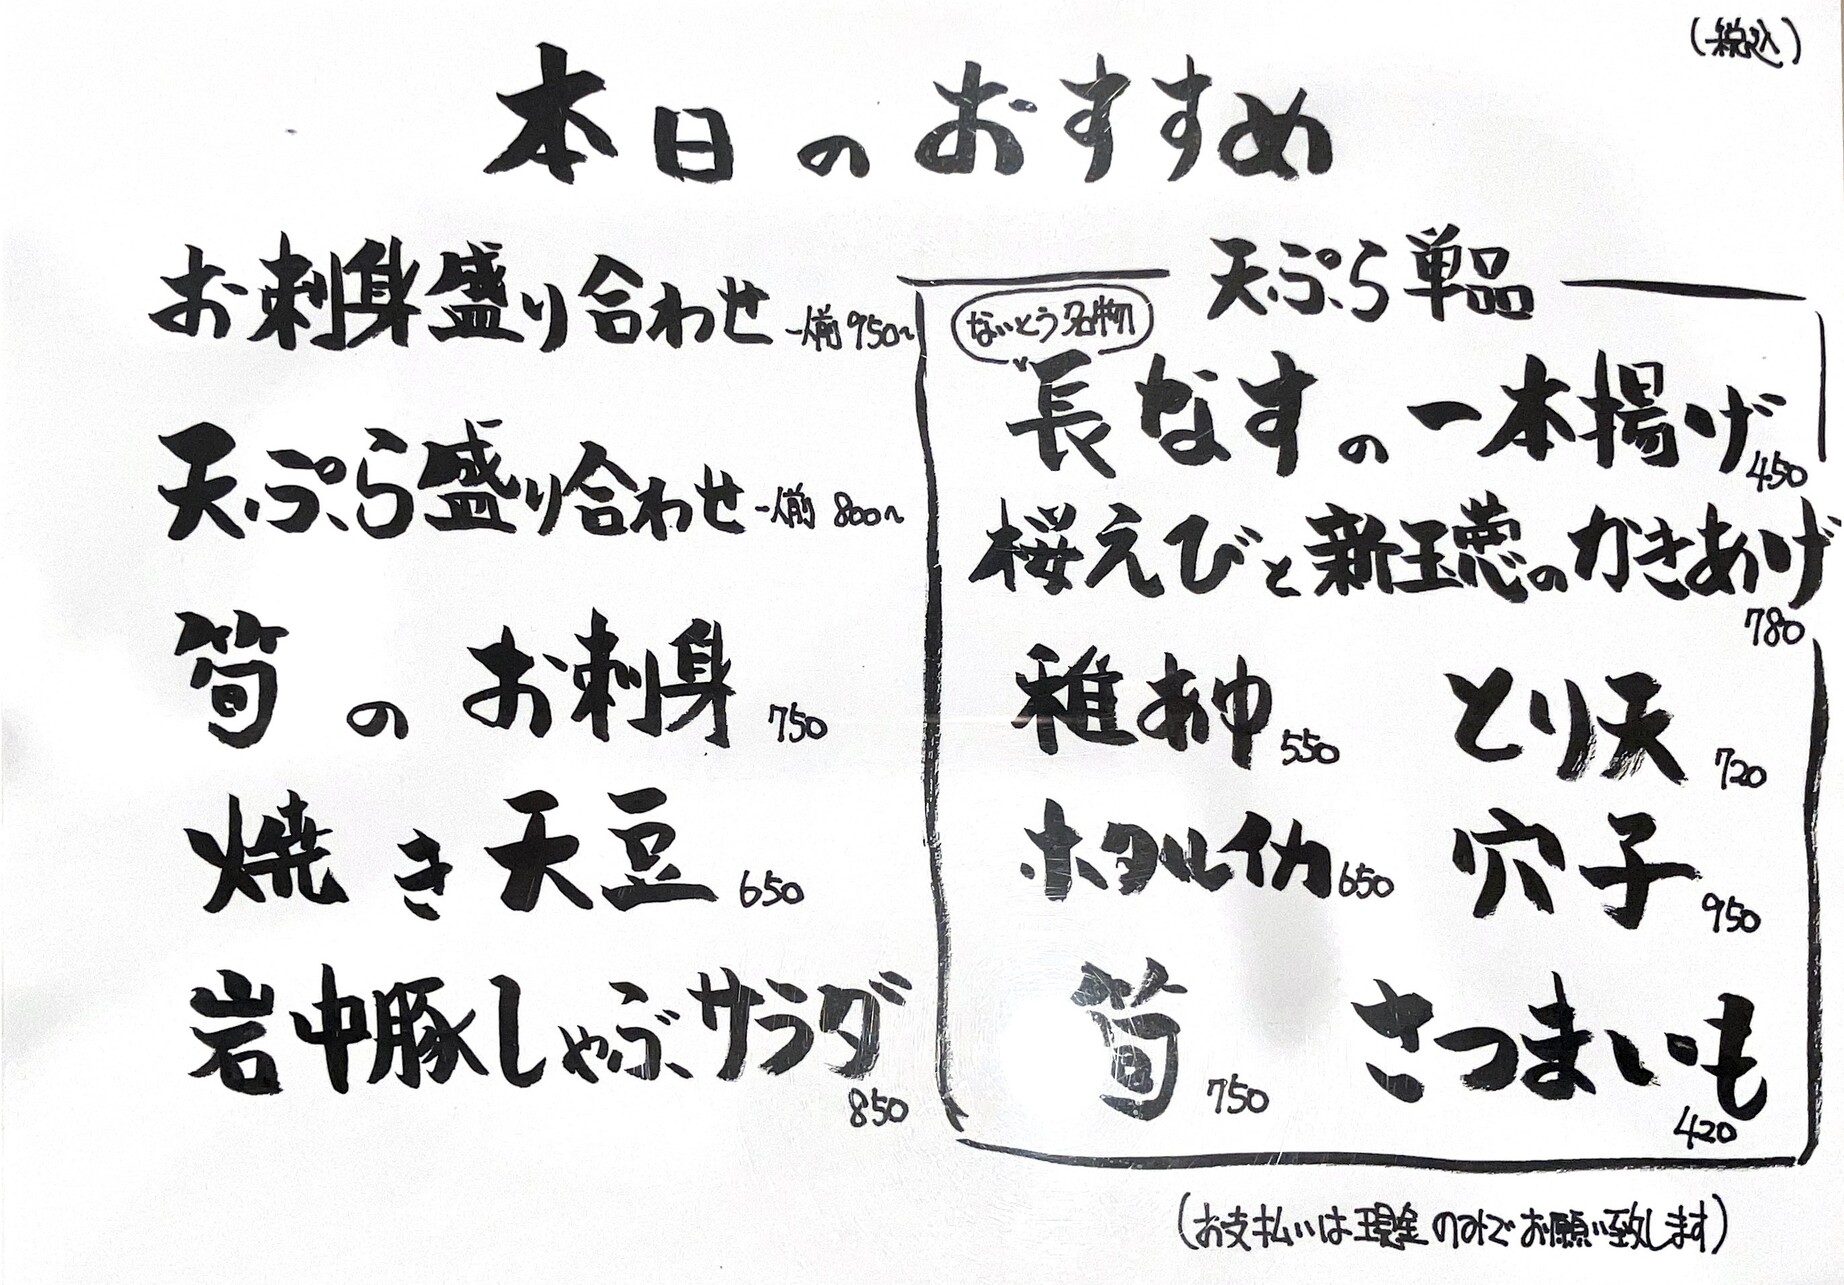 (税込)
本日のおすすめ
お刺身盛り合わせ 一人前 950〜
天ぷら盛り合わせ 一人前 800〜
筍のお刺身 750
焼き天豆 650
岩中豚しゃぶサラダ 850
天ぷら単品
ないとう名物
長なすの一本揚げ 450
桜えびと新玉葱のかきあげ 780
稚あゆ 550
とり天 720
ホタルイカ 650
穴子 950
筍 750
さつまいも 420
(お支払いは現金のみでお願い致します)